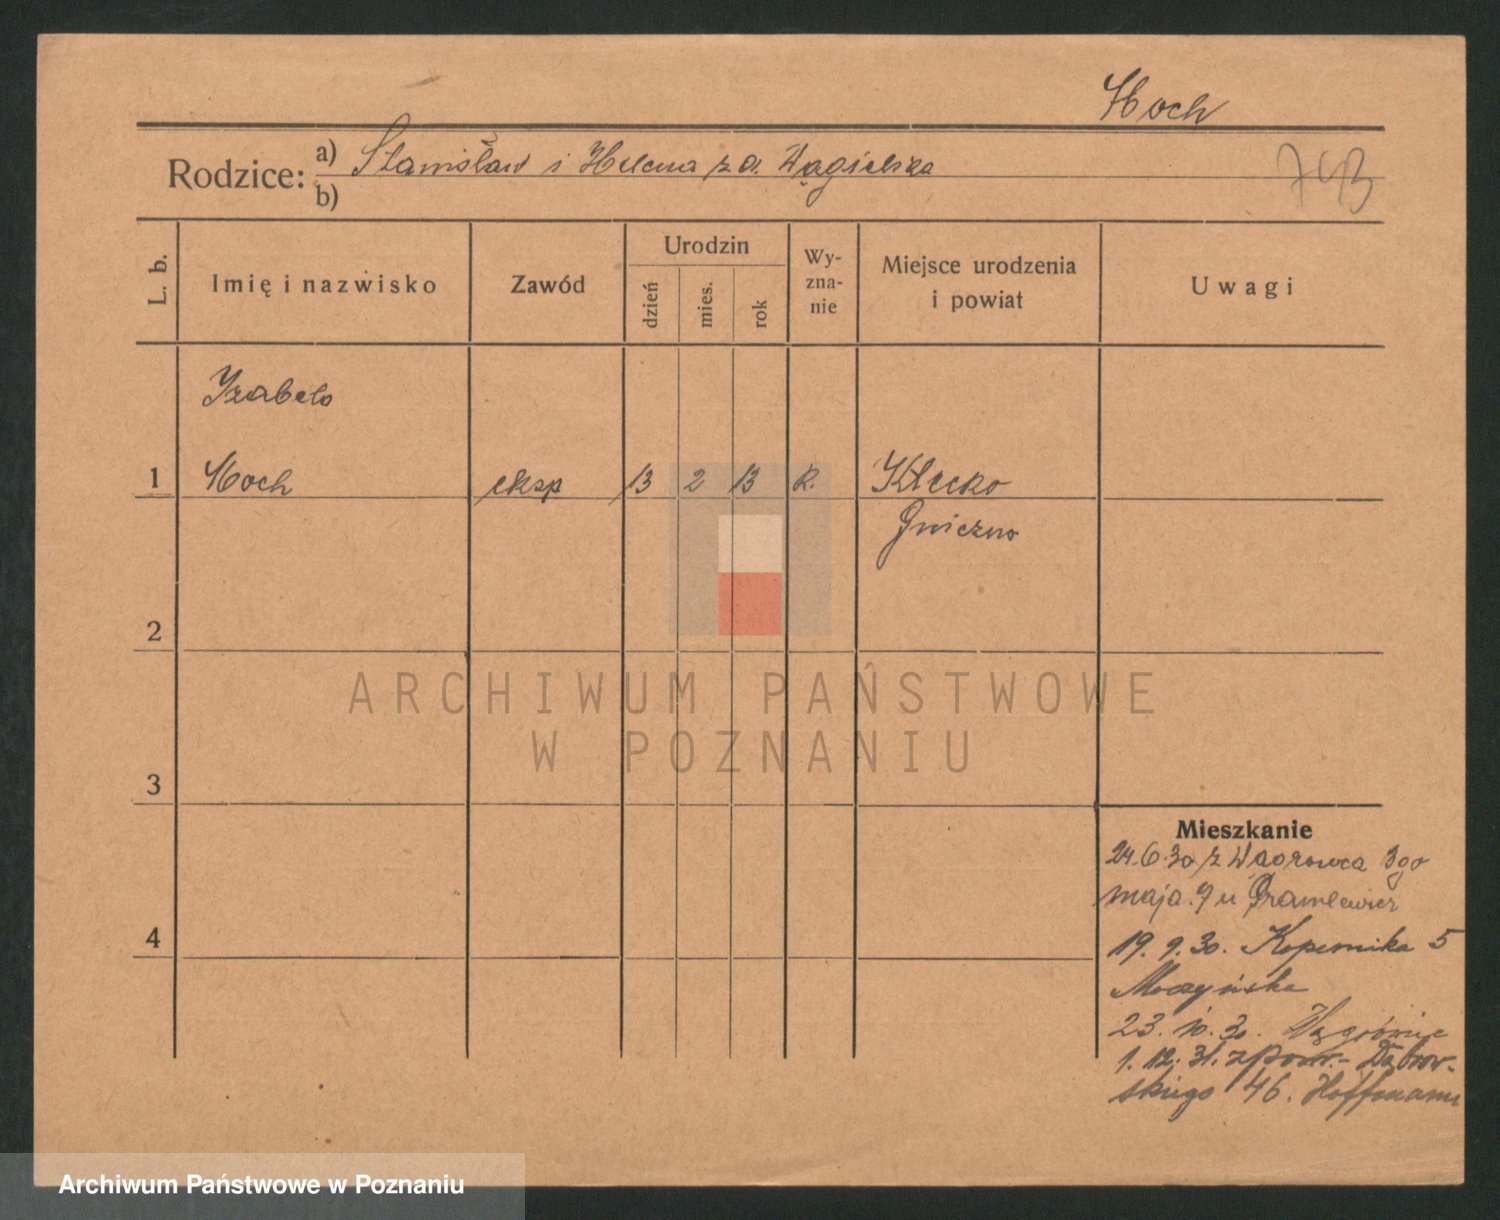 Hoch
Rodzice: a) Stanisław i Helena z d. Wągielska
b)
743
L. b.
Imię i nazwisko
Zawód
Urodzin
dzień
mies.
rok
Wy-
zna-
nie
Miejsce urodzenia
i powiat
Uwagi
Izabela
1 Hoch eksp 13 2 13 R. Kłecko
Gniezno
2
3
4
Mieszkanie
24.6.30 z Wągrowca 3go
maja 9 u
19.9.30. Kopernika 5
Moczyńska
23.10.30. Wągrówiec
1.12.31. z pow.- Dąbrow-
skiego 46. Hoffmann
ARCHIWUM PAŃSTWOWE
W POZNANIU
Archiwum Państwowe w Poznaniu